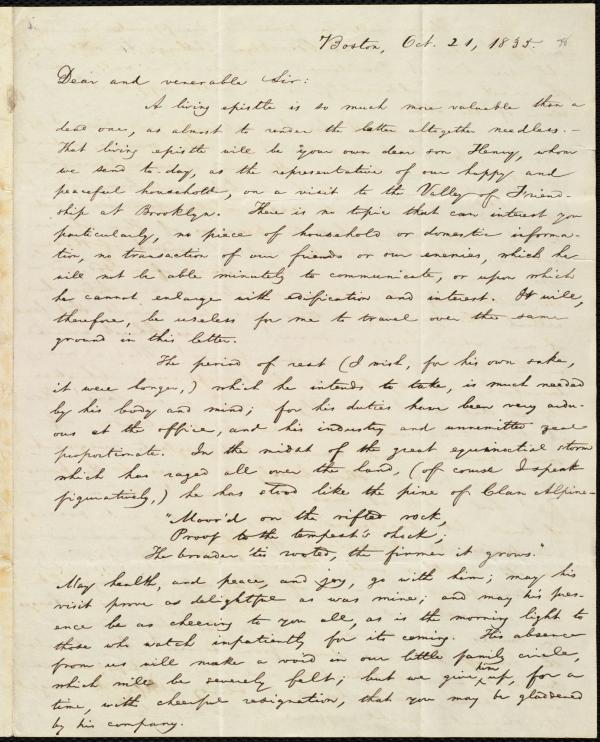 Boston, Oct. 21, 1835.
Dear and venerable Sir:
A living epistle is so much more valuable than a
dead one, as almost to render the latter altogether needless.—
That living epistle will be your own dear son Henry, whom
we send to-day, as the representative of our happy and
peaceful household, on a visit to the Valley of Friend-
ship at Brooklyn. There is no topic that can interest you
particularly, no piece of household or domestic informa-
tion, no transaction of our friends or our enemies, which he
will not be able minutely to communicate, or upon which
he cannot enlarge with edification and interest. It will,
therefore, be useless for me to travel over the same
ground in this letter.
The period of rest (I wish, for his own sake,
it were longer,) which he intends to take, is much needed
by his body and mind; for his duties have been very ardu-
ous at the office, and his industry and unremitted zeal
proportionate. In the midst of the great equinoctial storm
which has raged all over the land, (of course I speak
figuratively,) he has stood like the pine of Clan Alpine—
"Moor'd on the rifted rock,
Proof to the tempest's shock;
The broader 'tis rooted, the firmer it grows."
May health, and peace, and joy, go with him; may his
visit prove as delightful as was mine; and may his pres-
ence be as cheering to you all, as is the morning light to
those who watch impatiently for its coming. His absence
from us will make a void in our little family circle,
which will be severely felt; but we give him up, for a
time, with cheerful resignation, that you may be gladdened
by his company.